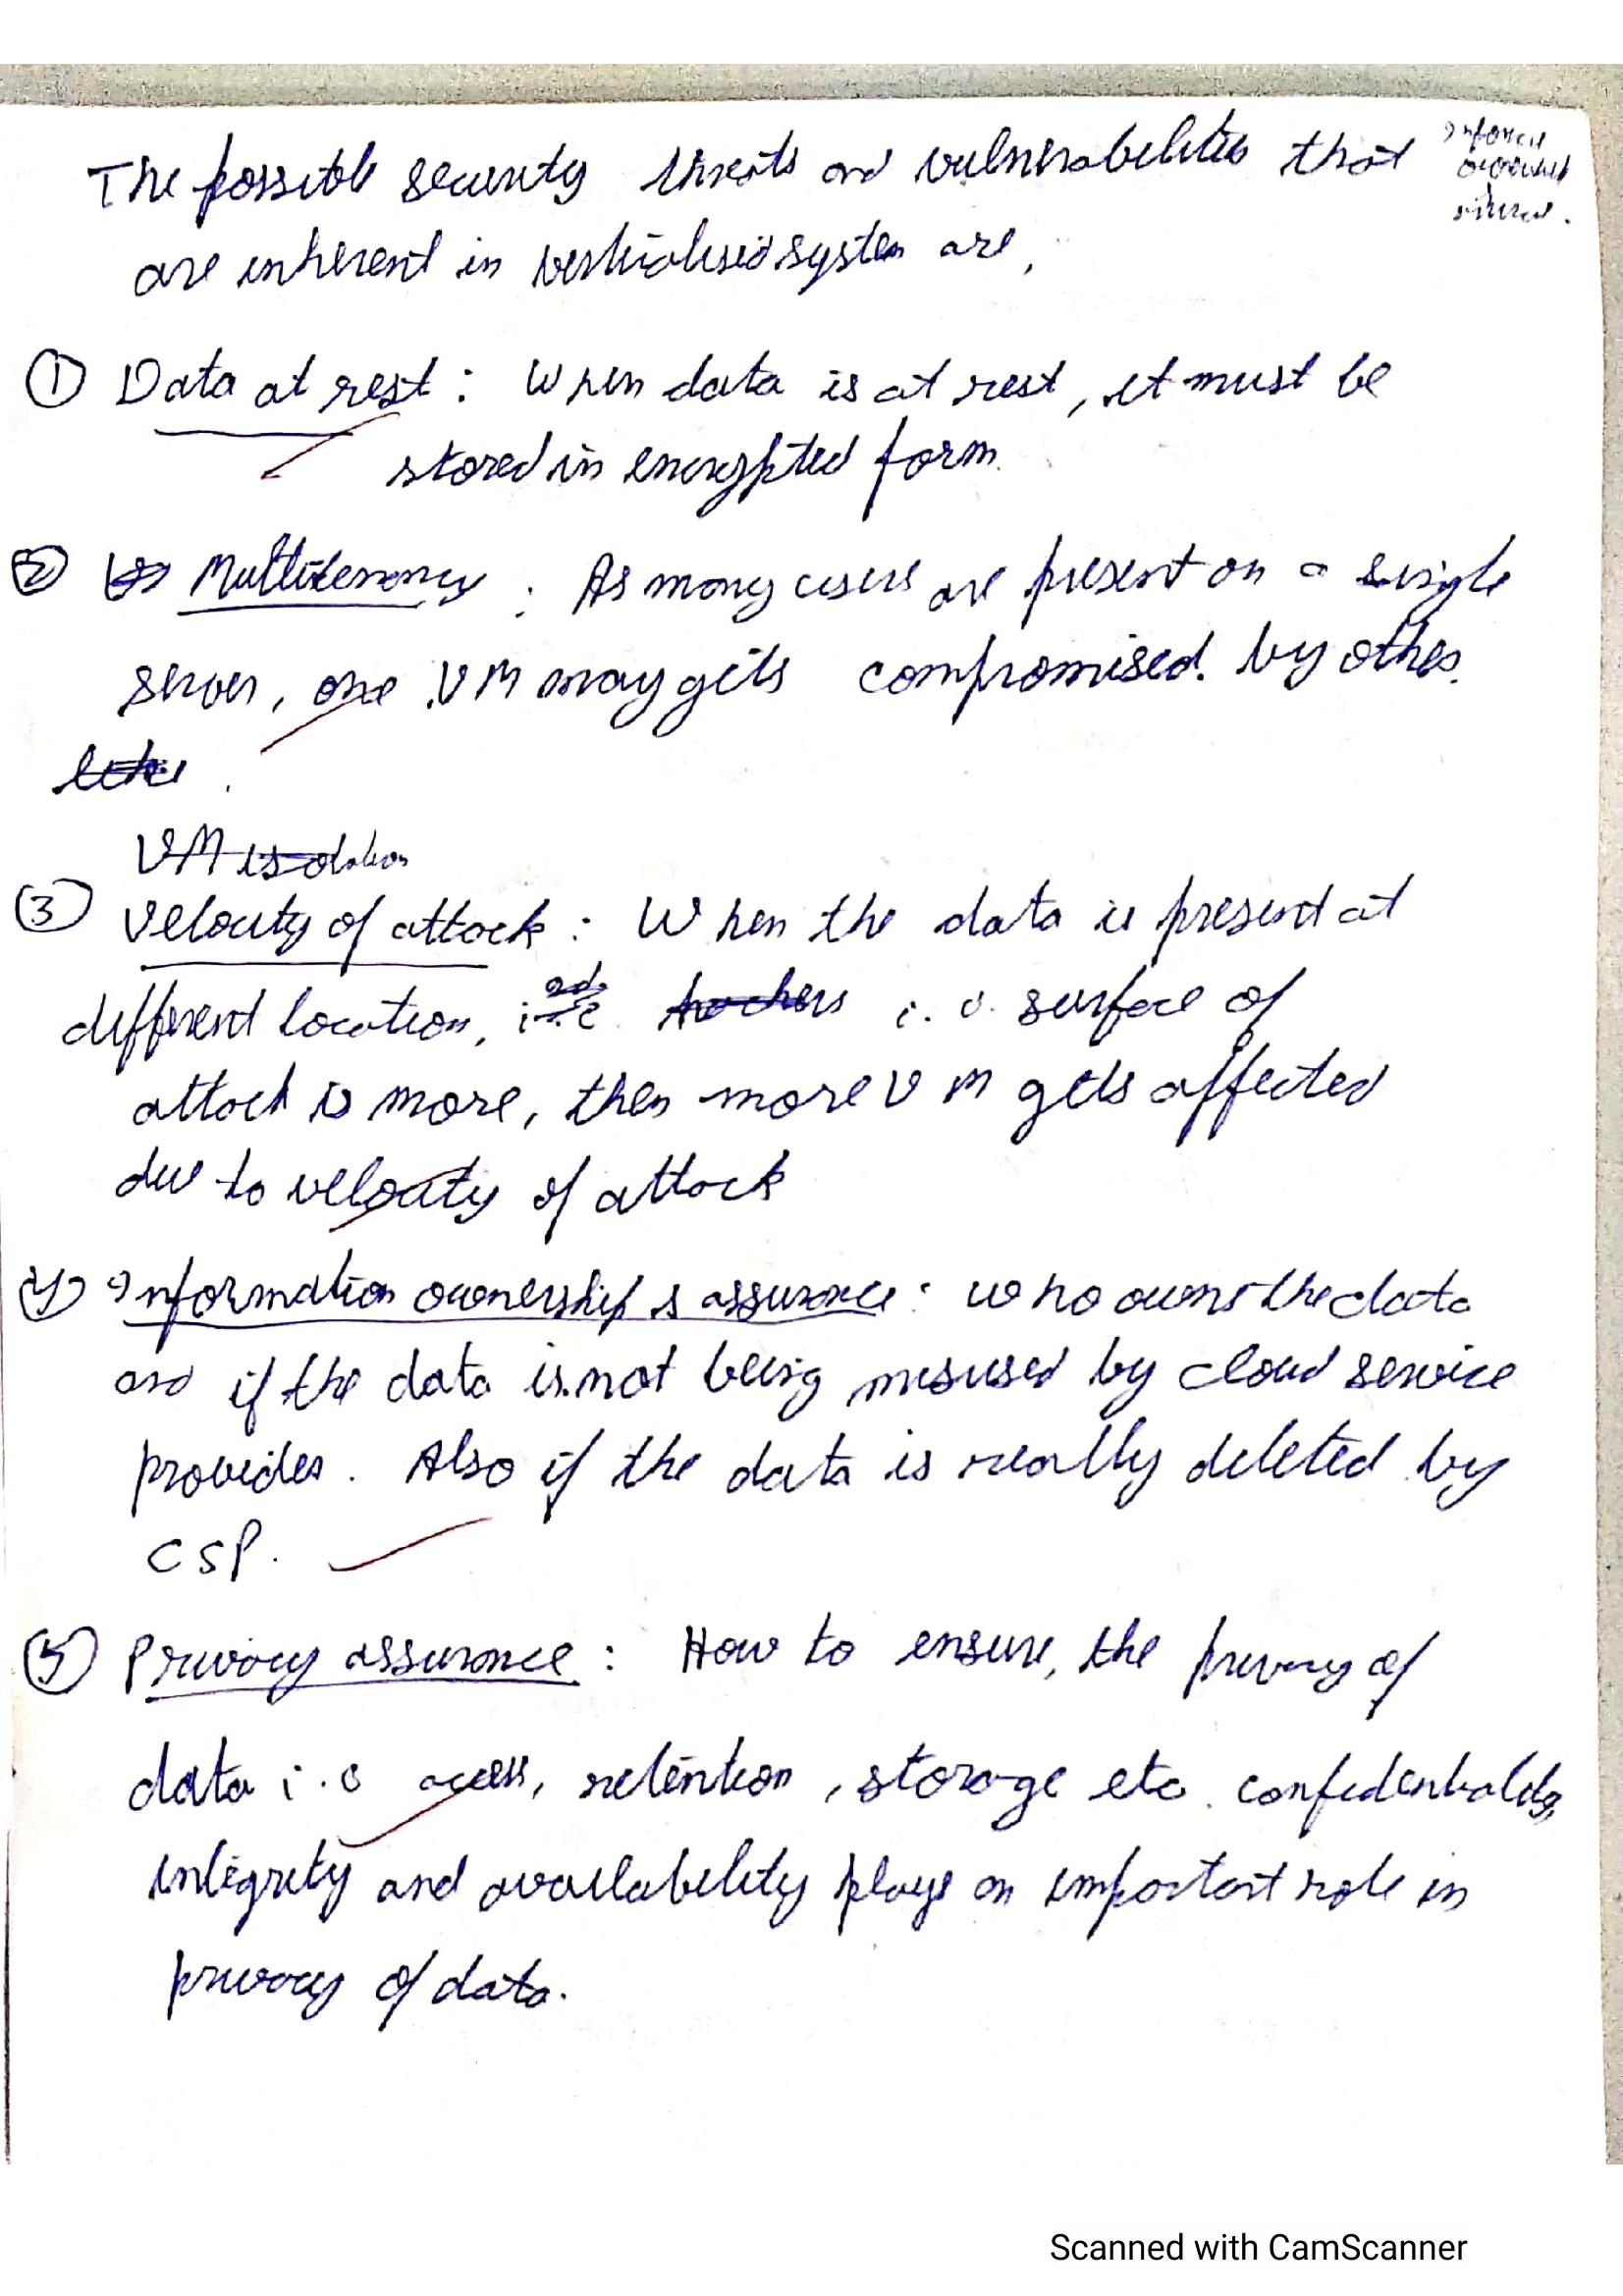 The possible security threats and vulnerabilities that
are inherent in system are,
① Data at rest : When data is at rest, it must be
stored in encrypted form.
② Multitenancy : As many users are present on a single
server, one VM may gets compromised by other.
VM isolation
③ Velocity of attack : When the data is present at
different location, i.e. surface of
attack is more, then more VM gets affected
due to velocity of attack
④ Information ownership & assurance : who owns the data
and if the data is not being misused by cloud service
provider. Also if the data is really deleted by
CSP.
⑤ Privacy assurance : How to ensure, the privacy of
data i.e access, retention, storage etc. confidentiality,
integrity and availability plays an important role in
privacy of data.
Scanned with CamScanner